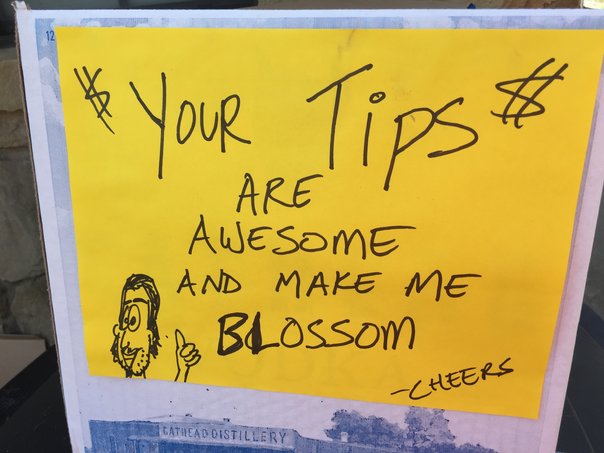 12
$ YOUR TIPS $
ARE
AWESOME
AND MAKE ME
BLOSSOM
-CHEERS
CATHEAD DISTILLERY